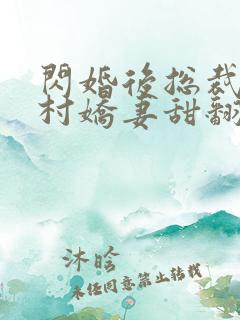 閃婚後總裁
村嬌妻甜翻
沐晗
未任同意禁止转载